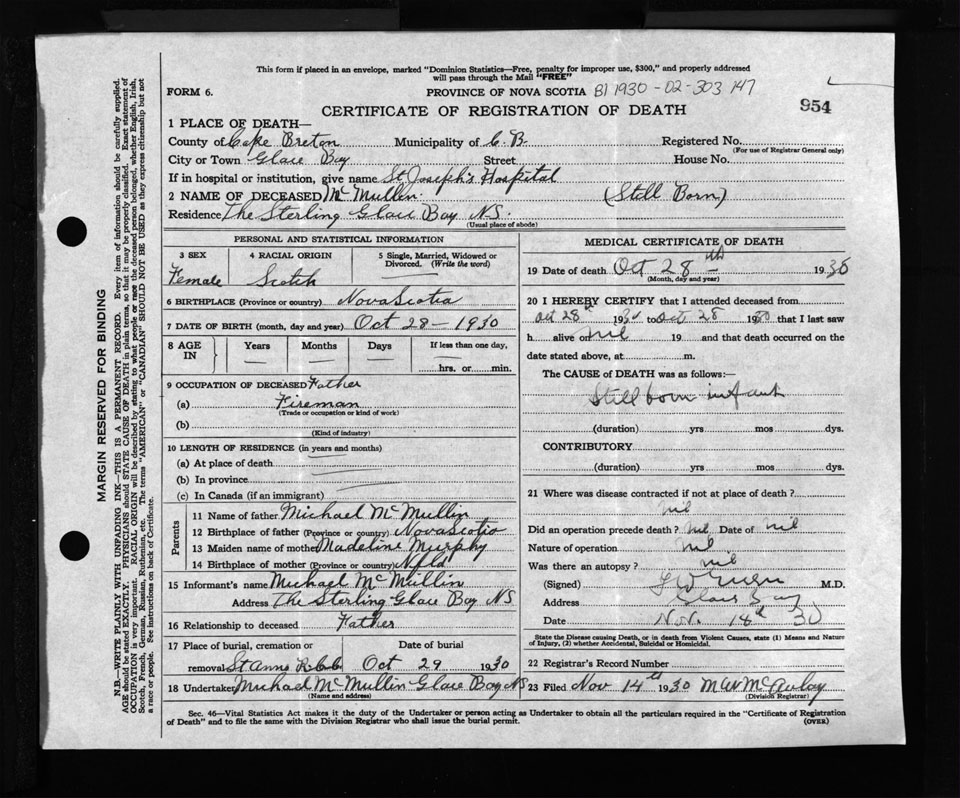 This form if placed in an envelope, marked "Dominion Statistics—Free, penalty for improper use, $300," and properly addressed
will pass through the Mail "FREE"
FORM 6.
PROVINCE OF NOVA SCOTIA B1 1930-02-303 147
954
CERTIFICATE OF REGISTRATION OF DEATH
1 PLACE OF DEATH—
County of Cape Breton Municipality of C.B. Registered No.
(For use of Registrar General only)
City or Town Glace Bay Street House No.
If in hospital or institution, give name St Joseph's Hospital
2 NAME OF DECEASED McMullin (Still Born)
Residence The Sterling Glace Bay N.S.
(Usual place of abode)
PERSONAL AND STATISTICAL INFORMATION
3 SEX 4 RACIAL ORIGIN 5 Single, Married, Widowed or
Divorced. (Write the word)
Female Scotch
6 BIRTHPLACE (Province or country) Nova Scotia
7 DATE OF BIRTH (month, day and year) Oct 28 - 1930
8 AGE IN Years Months Days If less than one day,
hrs. or min.
9 OCCUPATION OF DECEASED Father
(a) Fireman
(Trade or occupation or kind of work)
(b)
(Kind of industry)
10 LENGTH OF RESIDENCE (in years and months)
(a) At place of death
(b) In province
(c) In Canada (if an immigrant)
Parents
11 Name of father Michael McMullin
12 Birthplace of father (Province or country) Nova Scotia
13 Maiden name of mother Madeline Murphy
14 Birthplace of mother (Province or country) Nfld
15 Informant's name Michael McMullin
Address The Sterling Glace Bay NS
16 Relationship to deceased Father
17 Place of burial, cremation or Date of burial
removal St Anns Oct 29 1930
18 Undertaker Michael McMullin Glace Bay NS
(Name and address)
MEDICAL CERTIFICATE OF DEATH
19 Date of death Oct 28th - 1930
(Month, day and year)
20 I HEREBY CERTIFY that I attended deceased from
Oct 28th 1930 to Oct 28 1930 that I last saw
h alive on nil 19 and that death occurred on the
date stated above, at m.
The CAUSE of DEATH was as follows:—
Still born infant
(duration) yrs mos dys.
CONTRIBUTORY
(duration) yrs mos dys.
21 Where was disease contracted if not at place of death?
nil
Did an operation precede death? nil Date of nil
Nature of operation nil
Was there an autopsy? nil
(Signed) M.D.
Address Glace Bay
Date Nov. 18th 30
State the Disease causing Death, or in death from Violent Causes, state (1) Means and Nature
of Injury, (2) whether Accidental, Suicidal or Homicidal.
22 Registrar's Record Number
23 Filed Nov 14th 1930 M W McAuley
(Division Registrar)
Sec. 46—Vital Statistics Act makes it the duty of the Undertaker or person acting as Undertaker to obtain all the particulars required in the "Certificate of Registration
of Death" and to file the same with the Division Registrar who shall issue the burial permit.
(OVER)
MARGIN RESERVED FOR BINDING
N.B.—WRITE PLAINLY WITH UNFADING INK—THIS IS A PERMANENT RECORD. Every item of information should be carefully supplied.
AGE should be stated EXACTLY. PHYSICIANS should STATE CAUSE OF DEATH in plain terms, so that it may be properly classified. Exact statement of
OCCUPATION is very important. RACIAL ORIGIN will be described by stating to what people or race the deceased person belonged, whether English, Irish,
Scotch, French, German, Russian, Ruthenian, etc. The terms "AMERICAN" or "CANADIAN" SHOULD NOT BE USED as they express citizenship but not
a race or people. See instructions on back of Certificate.